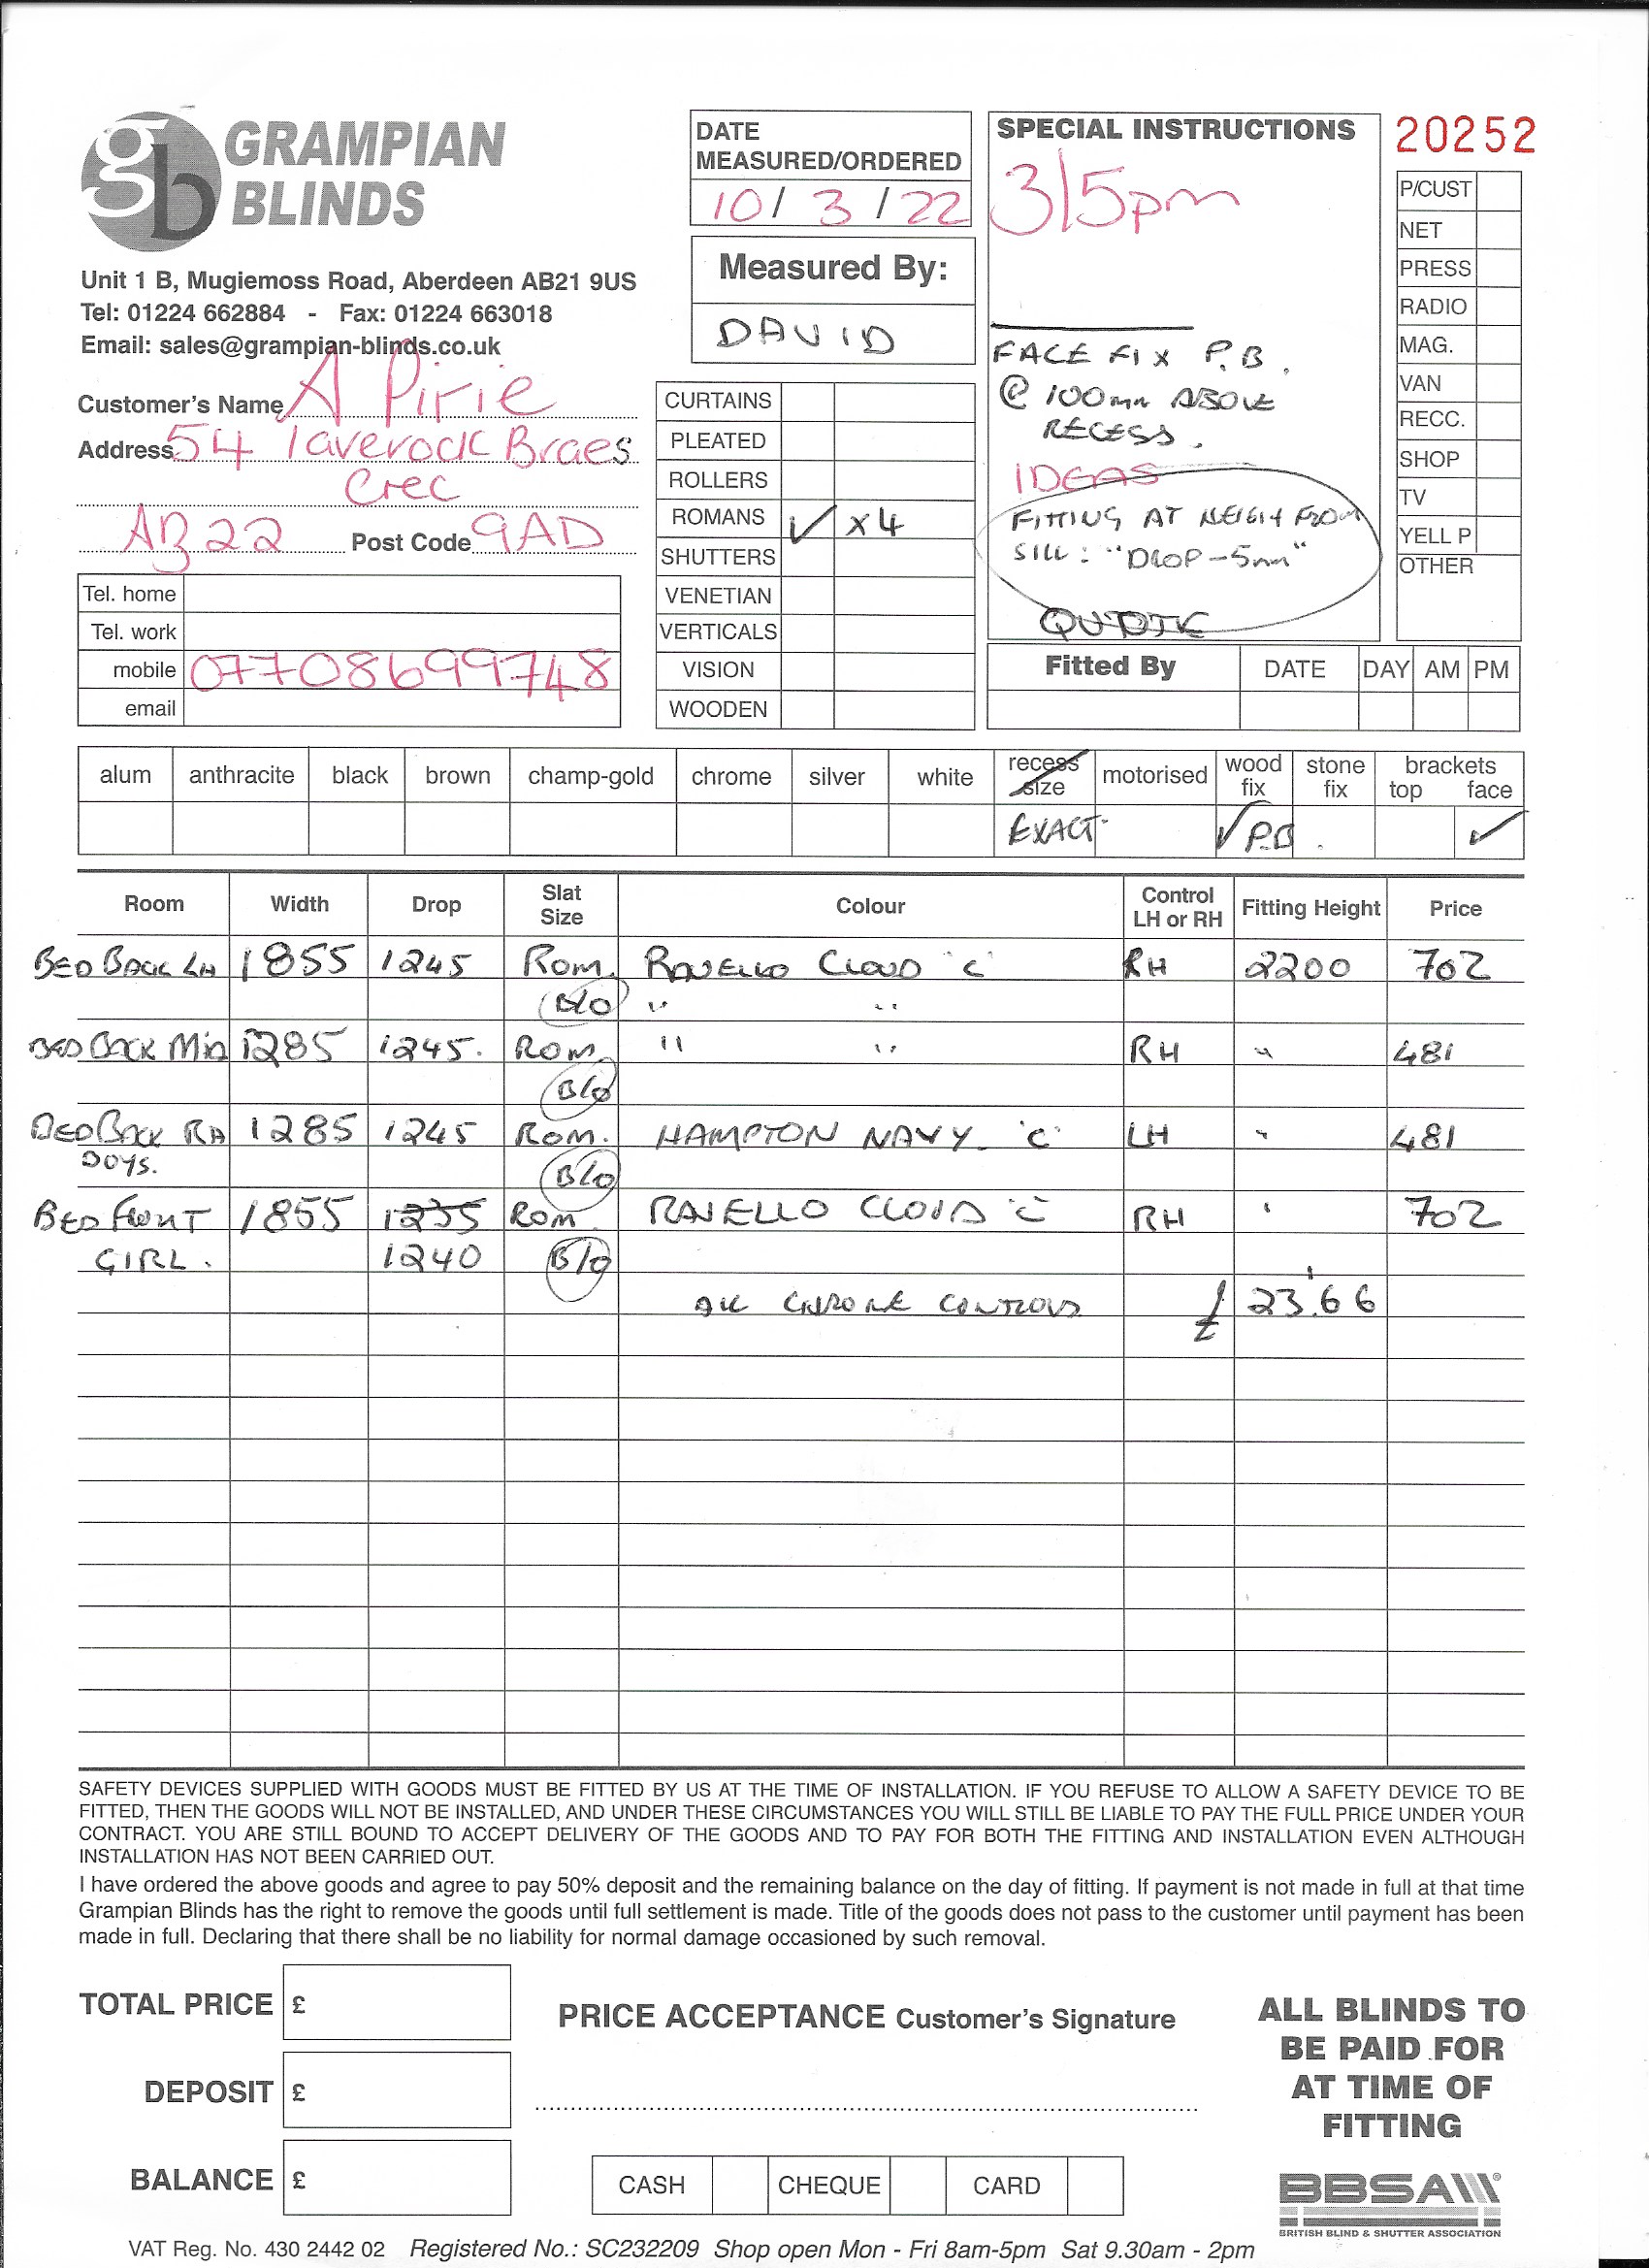 GRAMPIAN
BLINDS
Unit 1 B, Mugiemoss Road, Aberdeen AB21 9US
Tel: 01224 662884 - Fax: 01224 663018
Email: sales@grampian-blinds.co.uk
Customer's Name A Pirie
Address 54 laverock Braes
Crec
AB22 Post Code 9AD
Tel. home
Tel. work
mobile 07708699748
email
DATE
MEASURED/ORDERED
10/ 3 / 22
Measured By:
DAVID
CURTAINS
PLEATED
ROLLERS
ROMANS ✓ x4
SHUTTERS
VENETIAN
VERTICALS
VISION
WOODEN
SPECIAL INSTRUCTIONS
3/5pm
FACE FIX P.B.
@ 100mm ABOVE
RECESS.
IDEAS
FITTING AT HEIGH FROM
SILL : "DROP-5mm"
QUOTE
20252
P/CUST
NET
PRESS
RADIO
MAG.
VAN
RECC.
SHOP
TV
YELL P
OTHER
Fitted By DATE DAY AM PM
alum anthracite black brown champ-gold chrome silver white recess size motorised wood fix stone fix brackets top face
EXACT ✓ P.B. ✓
Room Width Drop Slat Size Colour Control LH or RH Fitting Height Price
BED BACK LH 1855 1245 ROM. RAVELLO CLOUD 'C' RH 2200 702
B/O " "
BED BACK MID 1285 1245. ROM. " " RH " 481
B/O
BED BACK RH 1285 1245 ROM. HAMPTON NAVY 'C' LH " 481
BOYS. B/O
BED FRONT 1855 1235 ROM RAVELLO CLOUD 'C' RH " 702
GIRL. 1240 B/O
ALL CHROME CONTROLS £ 23.66
SAFETY DEVICES SUPPLIED WITH GOODS MUST BE FITTED BY US AT THE TIME OF INSTALLATION. IF YOU REFUSE TO ALLOW A SAFETY DEVICE TO BE
FITTED, THEN THE GOODS WILL NOT BE INSTALLED, AND UNDER THESE CIRCUMSTANCES YOU WILL STILL BE LIABLE TO PAY THE FULL PRICE UNDER YOUR
CONTRACT. YOU ARE STILL BOUND TO ACCEPT DELIVERY OF THE GOODS AND TO PAY FOR BOTH THE FITTING AND INSTALLATION EVEN ALTHOUGH
INSTALLATION HAS NOT BEEN CARRIED OUT.
I have ordered the above goods and agree to pay 50% deposit and the remaining balance on the day of fitting. If payment is not made in full at that time
Grampian Blinds has the right to remove the goods until full settlement is made. Title of the goods does not pass to the customer until payment has been
made in full. Declaring that there shall be no liability for normal damage occasioned by such removal.
TOTAL PRICE £
DEPOSIT £
BALANCE £
PRICE ACCEPTANCE Customer's Signature
CASH CHEQUE CARD
ALL BLINDS TO
BE PAID FOR
AT TIME OF
FITTING
BBSA
BRITISH BLIND & SHUTTER ASSOCIATION
VAT Reg. No. 430 2442 02 Registered No.: SC232209 Shop open Mon - Fri 8am-5pm Sat 9.30am - 2pm